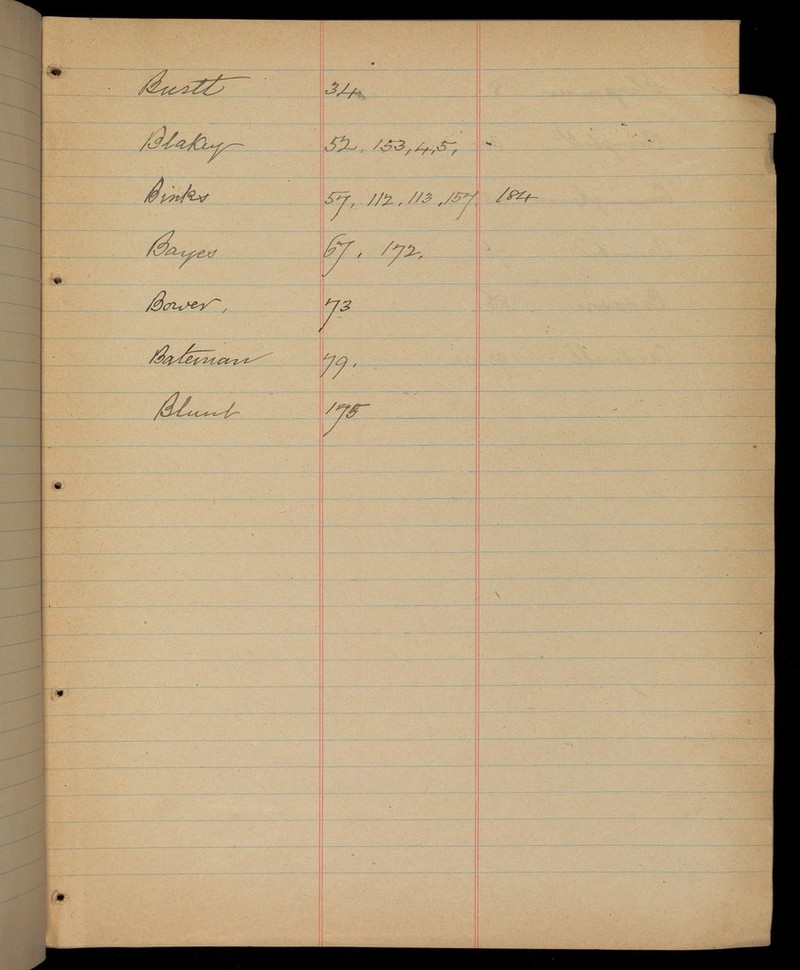 Burtt 34
Blakey 52, 153, 4, 5,
Binks 57, 112, 113, 157 184
Bayes 67, 172.
Bower, 73
Bateman 79.
Blunt 175